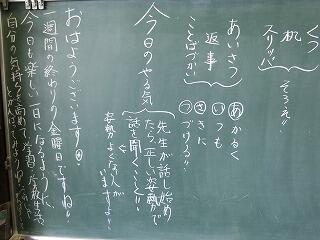 くつ
机
スリッパ
そろえ!!
あいさつ
返事
ことばづかい
あかるく
いつも
さきに
つづける!!
今日のやる気
先生が話し始め
たら、正しい姿勢で
話を聞くこと!!
姿勢よくな人が
いますよー!
おはようございます!!
週間の終わりの金曜日ですね!!
今日も楽しい一日になるように、
自分の気持ちを高めて、学習、学校生活